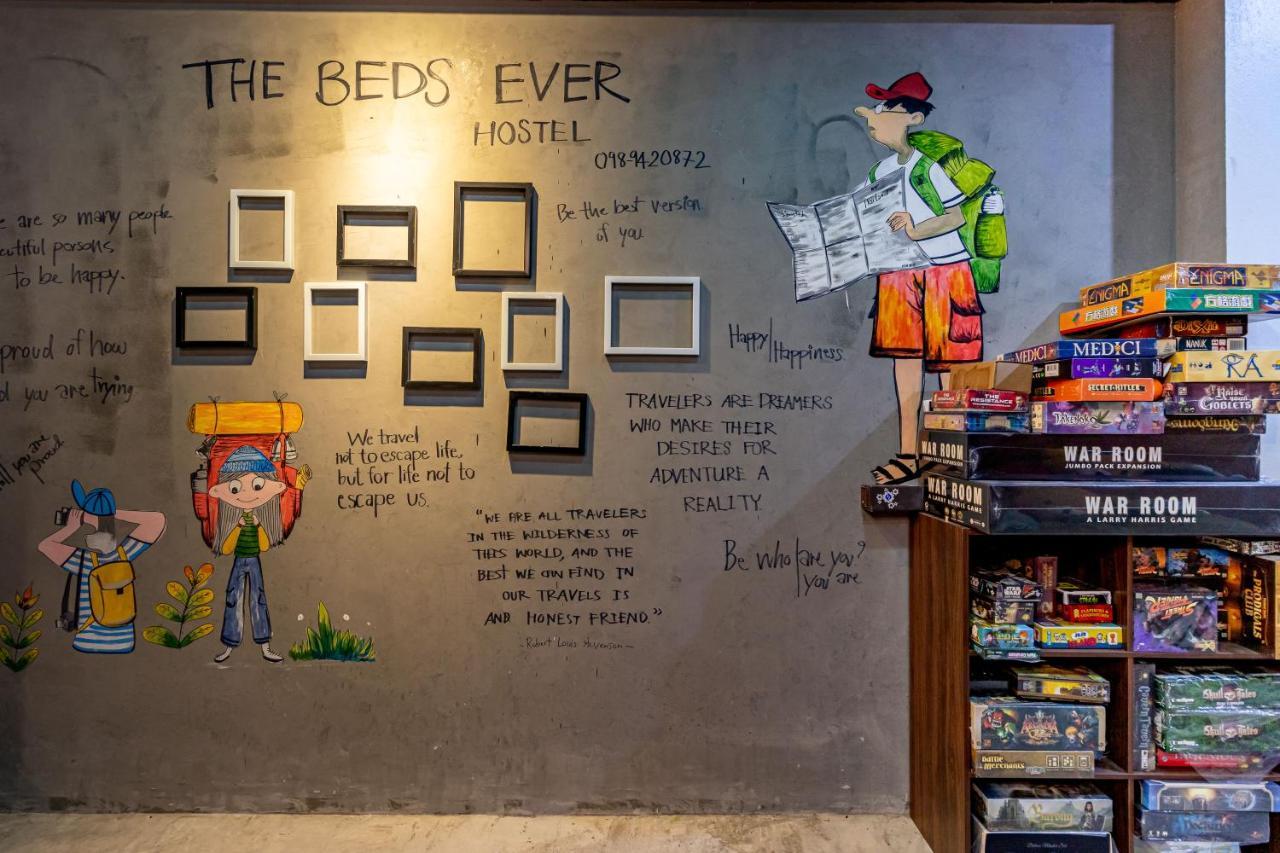 THE BEDS EVER
HOSTEL
098-94-2087-2
are so many people
persons
to be happy.
Be the best version
of you
proud of how
you are trying
you are
proud
Happy Happiness
We travel
not to escape life,
but for life not to
escape us.
TRAVELERS ARE DREAMERS
WHO MAKE THEIR
DESIRES FOR
ADVENTURE A
REALITY.
"WE ARE ALL TRAVELERS
IN THE WILDERNESS OF
THIS WORLD, AND THE
BEST WE CAN FIND IN
OUR TRAVELS IS
AND HONEST FRIEND."
- Robert Louis Stevenson -
Be who are you?
you are
ENIGMA
ENIGMA
MEDICI
MEDICI
NANUK
RA
SECRET-HITLER
THE RESISTANCE
TAKENOKO
Raise
your
GOBLETS
WAR ROOM
WAR ROOM
JUMBO PACK EXPANSION
WAR ROOM
WAR ROOM
A LARRY HARRIS GAME
STAR WARS
STREET FIGHTER
Skull Tales
Skull Tales
ARCADIA
Battle
Merchants